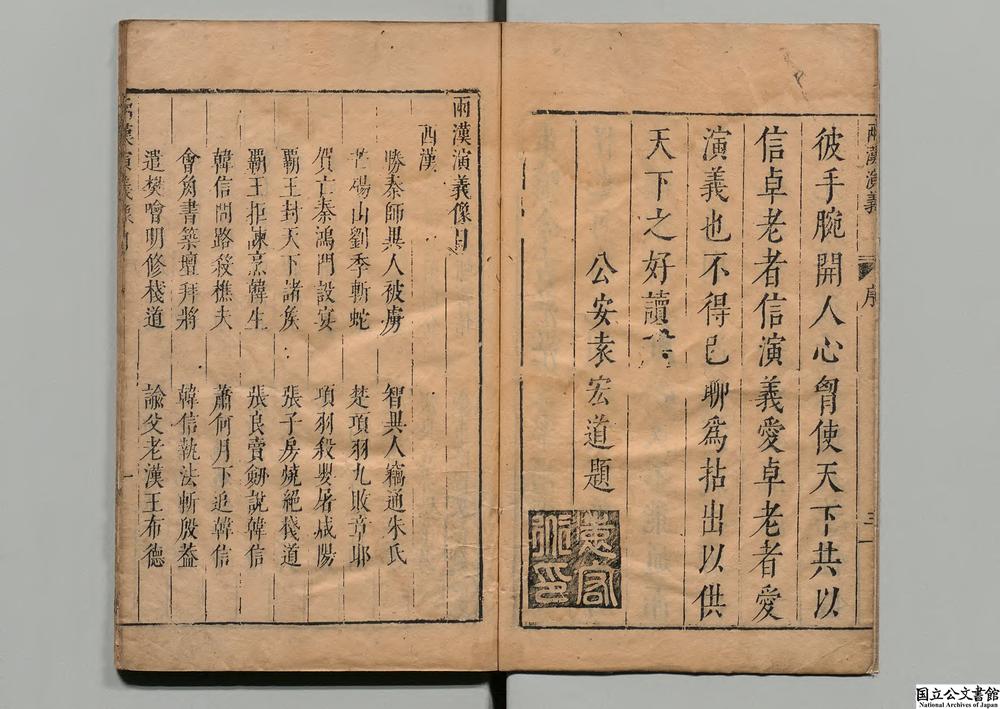 彼手腕開人心胷使天下共以
信卓老者信演義愛卓老者愛
演義也不得已聊爲拈出以供
天下之好讀
公安袁宏道題
兩漢演義
序
三
兩漢演義像目
西漢
勝秦師異人被虜 智異人竊通朱氏
芒碭山劉季斬蛇 楚項羽九敗章邯
賀亡秦鴻門設宴 項羽殺嬰屠咸陽
覇王封天下諸矦 張子房燒絕棧道
覇王拒諫烹韓生 張良賣劒說韓信
韓信問路殺樵夫 蕭何月下追韓信
會角書築壇拜將 韓信執法斬殷葢
遣樊噲明修棧道 諭父老漢王布德
一
国立公文書館
National Archives of Japan